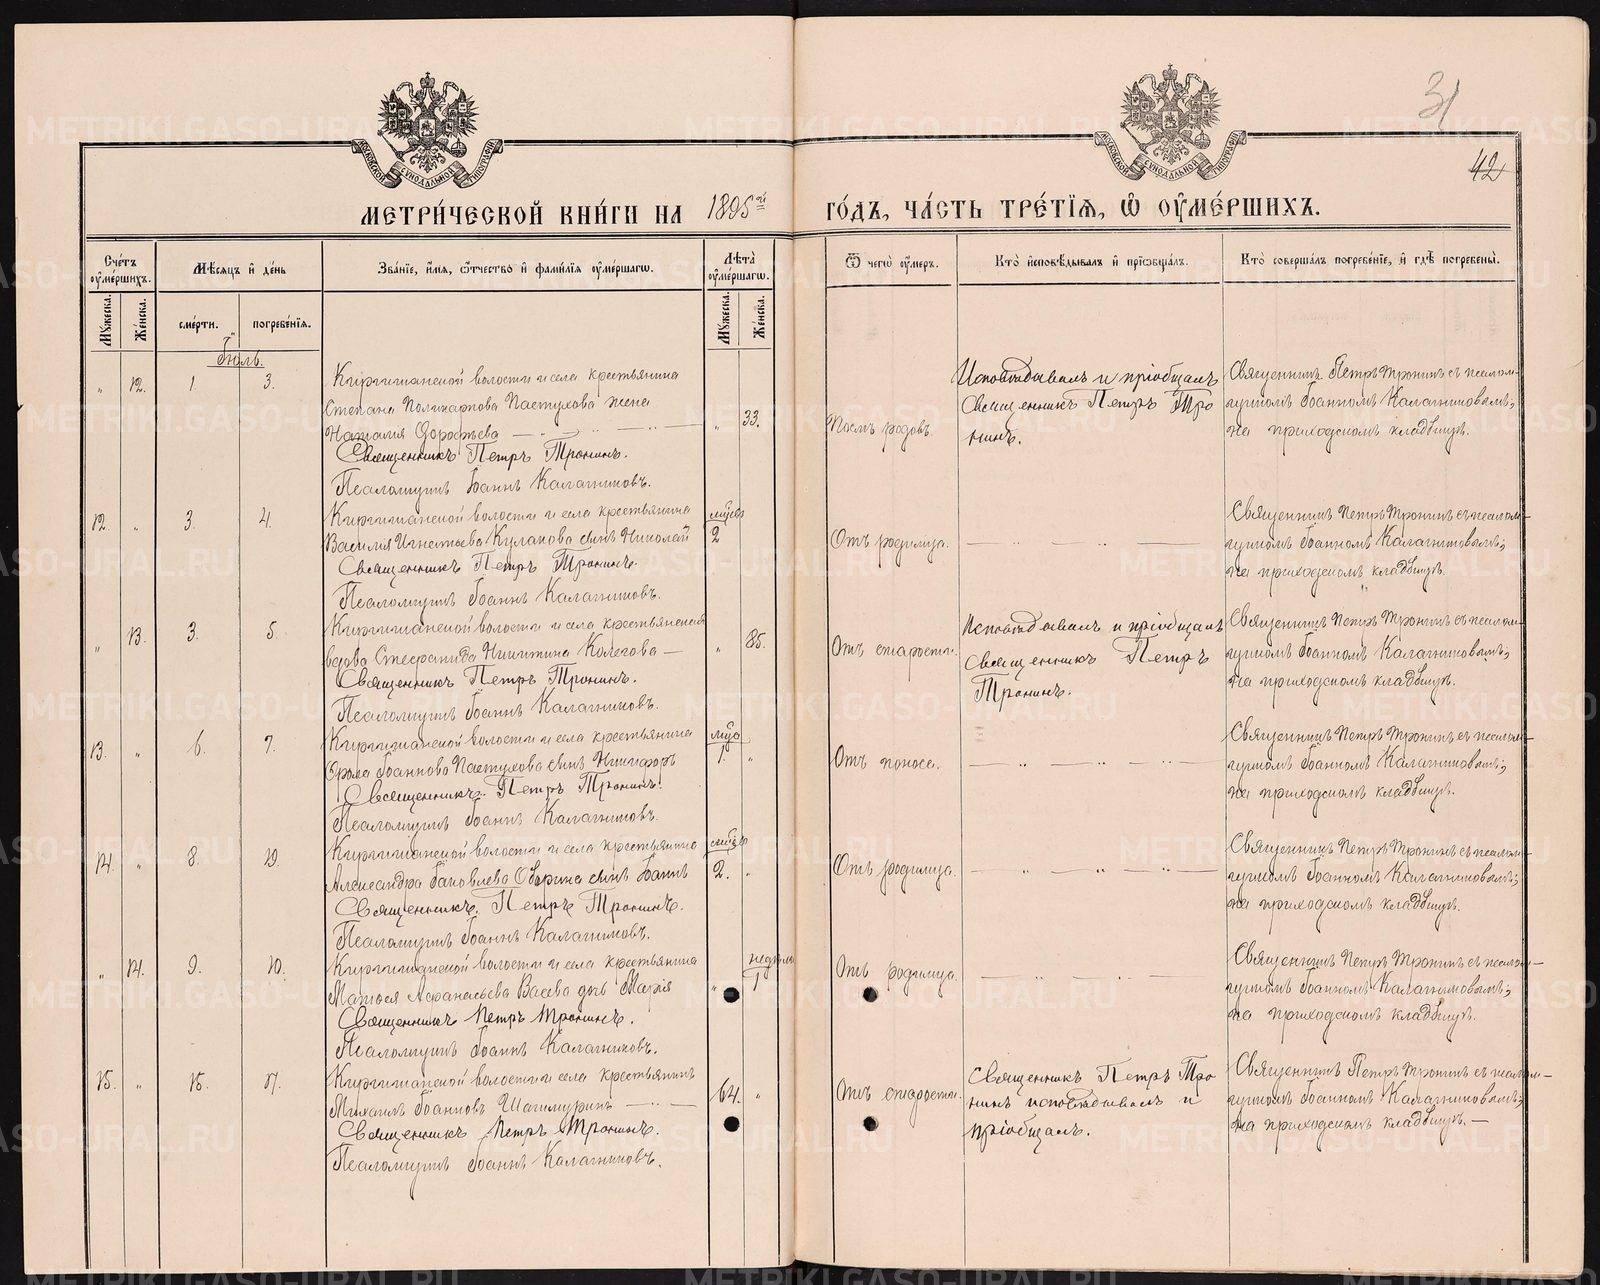 31
42
МЕТРИ́ЧЕСКОЙ КНИ́ГИ НА 1895й
ГО́ДЪ, ЧА́СТЬ ТРЕ́ТІѦ, Ѡ҆ ОУ҆МЕ́РШИХЪ.
Сче́тъ оу҆ме́ршихъ.
Мѣ́сѧцъ и҆ де́нь
Зва́нїе, и҆́мѧ, ѻ҆́тчество и҆ фами́лїѧ оу҆ме́ршагѡ.
Лѣ́та оу҆ме́ршагѡ.
Ѿ чегѡ̀ оу҆́меръ.
Кто̀ и҆сповѣ́дывалъ и҆ прїѡбща́лъ.
Кто̀ соверша́лъ погребе́нїе, и҆ гдѣ̀ погребены̀.
Мꙋ́жеска.
Же́нска.
сме́рти.
погребе́нїѧ.
Мꙋ́жеска.
Же́нска.
Іюль.
„ 12. 1. 3. Киргишанской волости и села крестьянина
Степана Поликарпова Пастухова жена
Наталія Дорофѣева „ 33.
Священникъ Петръ Тронинъ.
Псаломщикъ Іоаннъ Калагниковъ.
Послѣ родовъ.
Исповѣдывалъ и пріобщалъ
Священникъ Петръ Тро
нинъ.
Священникъ Петръ Тронинъ съ псалом-
щикомъ Іоанномъ Калагниковымъ,
на приходскомъ кладбищѣ.
12. „ 3. 4. Киргишанской волости и села крестьянина мѣсяц
Василія Игнатьева Кулакова сынъ Николай 2
Священникъ Петръ Тронинъ.
Псаломщикъ Іоаннъ Калагниковъ.
Отъ родимца.
Священникъ Петръ Тронинъ съ псалом-
щикомъ Іоанномъ Калагниковымъ,
на приходскомъ кладбищѣ.
„ 13. 3. 5. Киргишанской волости и села крестьянская
вдова Стефанида Никитина Колегова „ 85.
Священникъ Петръ Тронинъ.
Псаломщикъ Іоаннъ Калагниковъ.
Отъ старости.
Исповѣдывалъ и пріобщалъ
священникъ Петръ
Тронинъ.
Священникъ Петръ Тронинъ съ псалом-
щикомъ Іоанномъ Калагниковымъ,
на приходскомъ кладбищѣ.
13. „ 6. 7. Киргишанской волости и села крестьянина
Фрола Іоаннова Пастухова сынъ Никифоръ 1. „
Священникъ Петръ Тронинъ.
Псаломщикъ Іоаннъ Калагниковъ.
Отъ поноса.
Священникъ Петръ Тронинъ съ псалом-
щикомъ Іоанномъ Калагниковымъ,
на приходскомъ кладбищѣ.
14. „ 8. 10. Киргишанской волости и села крестьянина
Александра Іаковлева Обвинцова сынъ Іоаннъ 2. „
Священникъ Петръ Тронинъ.
Псаломщикъ Іоаннъ Калагниковъ.
Отъ родимца.
Священникъ Петръ Тронинъ съ псалом-
щикомъ Іоанномъ Калагниковымъ,
на приходскомъ кладбищѣ.
„ 14. 9. 10. Киргишанской волости и села крестьянина недѣль
Матвея Аѳанасьева Васева дочь Марія „ 1
Священникъ Петръ Тронинъ.
Псаломщикъ Іоаннъ Калагниковъ.
Отъ родимца.
Священникъ Петръ Тронинъ съ псалом-
щикомъ Іоанномъ Калагниковымъ,
на приходскомъ кладбищѣ.
15. „ 15. 17. Киргишанской волости и села крестьянинъ
Михаилъ Іоанновъ Шагимуринъ 64. „
Священникъ Петръ Тронинъ.
Псаломщикъ Іоаннъ Калагниковъ.
Отъ старости.
Священникъ Петръ Тро
нинъ исповѣдывалъ и
пріобщалъ.
Священникъ Петръ Тронинъ съ псалом-
щикомъ Іоанномъ Калагниковымъ,
на приходскомъ кладбищѣ.